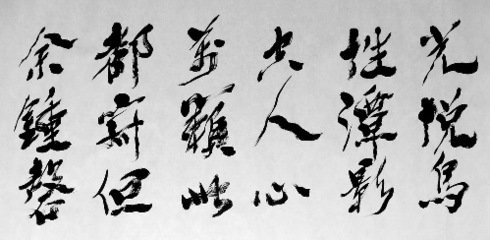 光悅鳥
性潭影
空人心
萬籟此
都寂但
余鍾磬